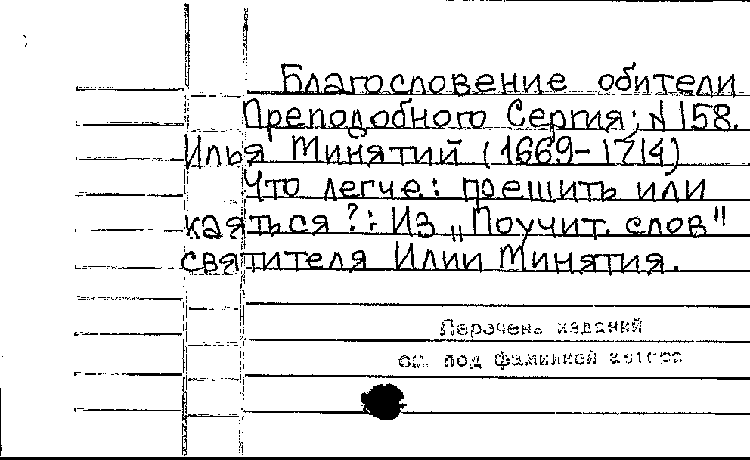 Благословение обители
Преподобного Сергия; N 158.
Илья Минятий (1669-1714)
Что легче: грешить или
каяться?: Из „Поучит. слов"
святителя Илии Минятия.
Перечень изданий
см. под фамилией автора